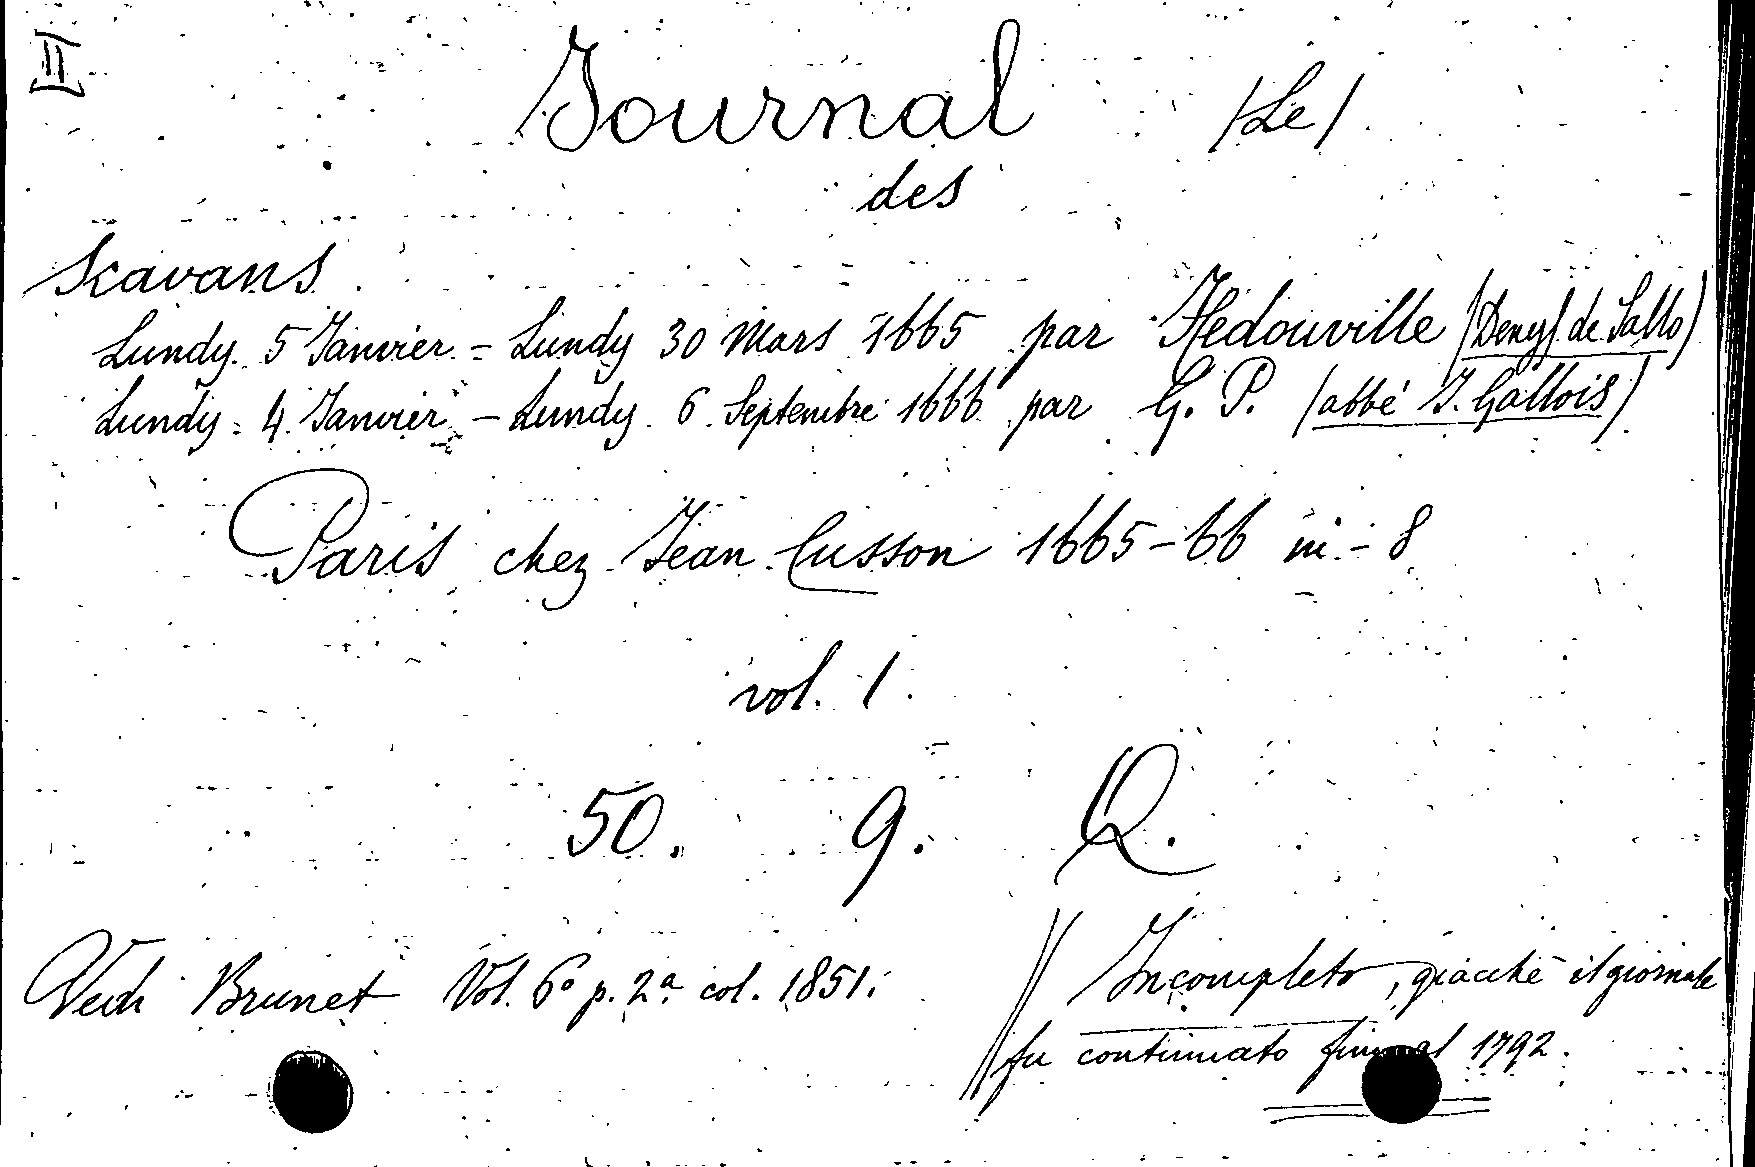 II
Journal /Le/
des
Scavans
Lundy 5 Janvier = Lundy 30 Mars 1665 par Hédouville (Denys de Sallo)
Lundy 4 Janvier - Lundy 6 Septembre 1666 par G. P. (abbé J. Gallois)
Paris chez Jean Cusson 1665-66 in-8
vol. 1.
50. 9. Q.
Vedi Brunet Vol. 6º p. 2ª col. 1851.
// Incompleto, giacchè il giornale
fu continuato fino al 1792.